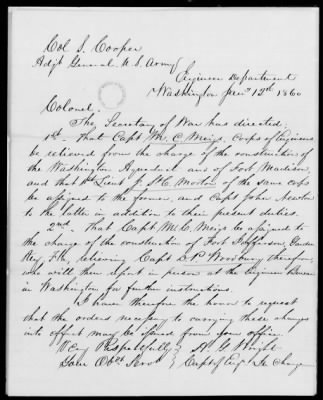 Col S. Cooper
Adjt General U.S. Army
Engineer Department
Washington 12th 1860
Colonel.
The Secretary of War has directed;
1st. That Capt M. C. Meigs, Corps of Engineers
be relieved from the charge of the construction of
the Washington Aqueduct and of Fort Madison,
and that 1st Lieut J. St C. Morton of the same corps
be assigned to the former, and Capt John Newton
to the latter in addition to their present duties.
2nd. That Capt M. C. Meigs be assigned to
the charge of the construction of Fort Jefferson, Garden
Key, Fla, relieving Capt D. P. Woodbury therefrom,
who will then report in person at the Engineer Bureau
in Washington for further instructions.
I have therefore the honor to request
that the orders necessary to carrying these changes
into effect may be issued from your office.
Very Respectfully
H. G. Wright
Your Obt Servt
Capt of Engrs In Charge